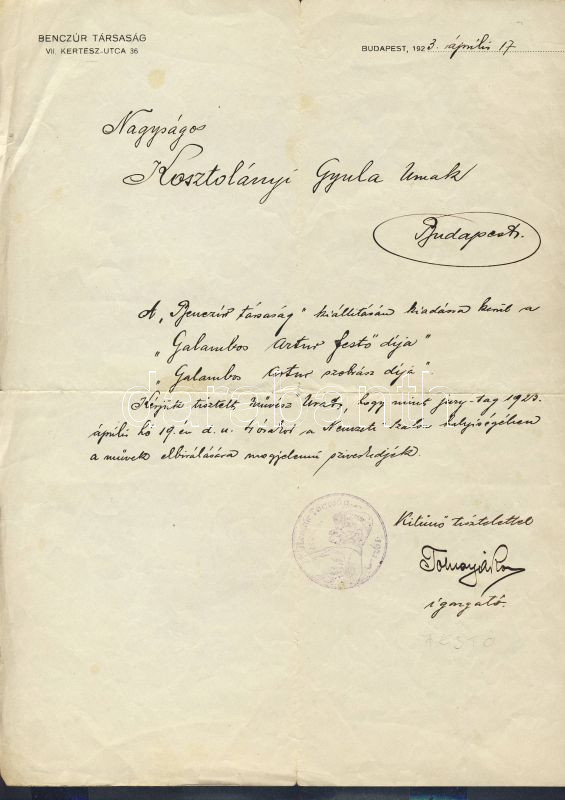 BENCZÚR TÁRSASÁG
VII. KERTÉSZ-UTCA 36
BUDAPEST, 1923 április 17
Nagyságos
Kosztolányi Gyula Urnak
Budapest.
A „Benczúr társaság" kiállitásán kiadásra kerül a
„Galambos Artur festő díja"
„Galambos Artur szobrász díja".
Kérjük tisztelt művész Urat, hogy mint jury-tag 1923.
április hó 19.én d. u. 4 órakor a Nemzeti Szalon helyiségében
a művek elbirálására megjelenni sziveskedjék.
Kitünő tisztelettel
igazgató.
FESTŐ